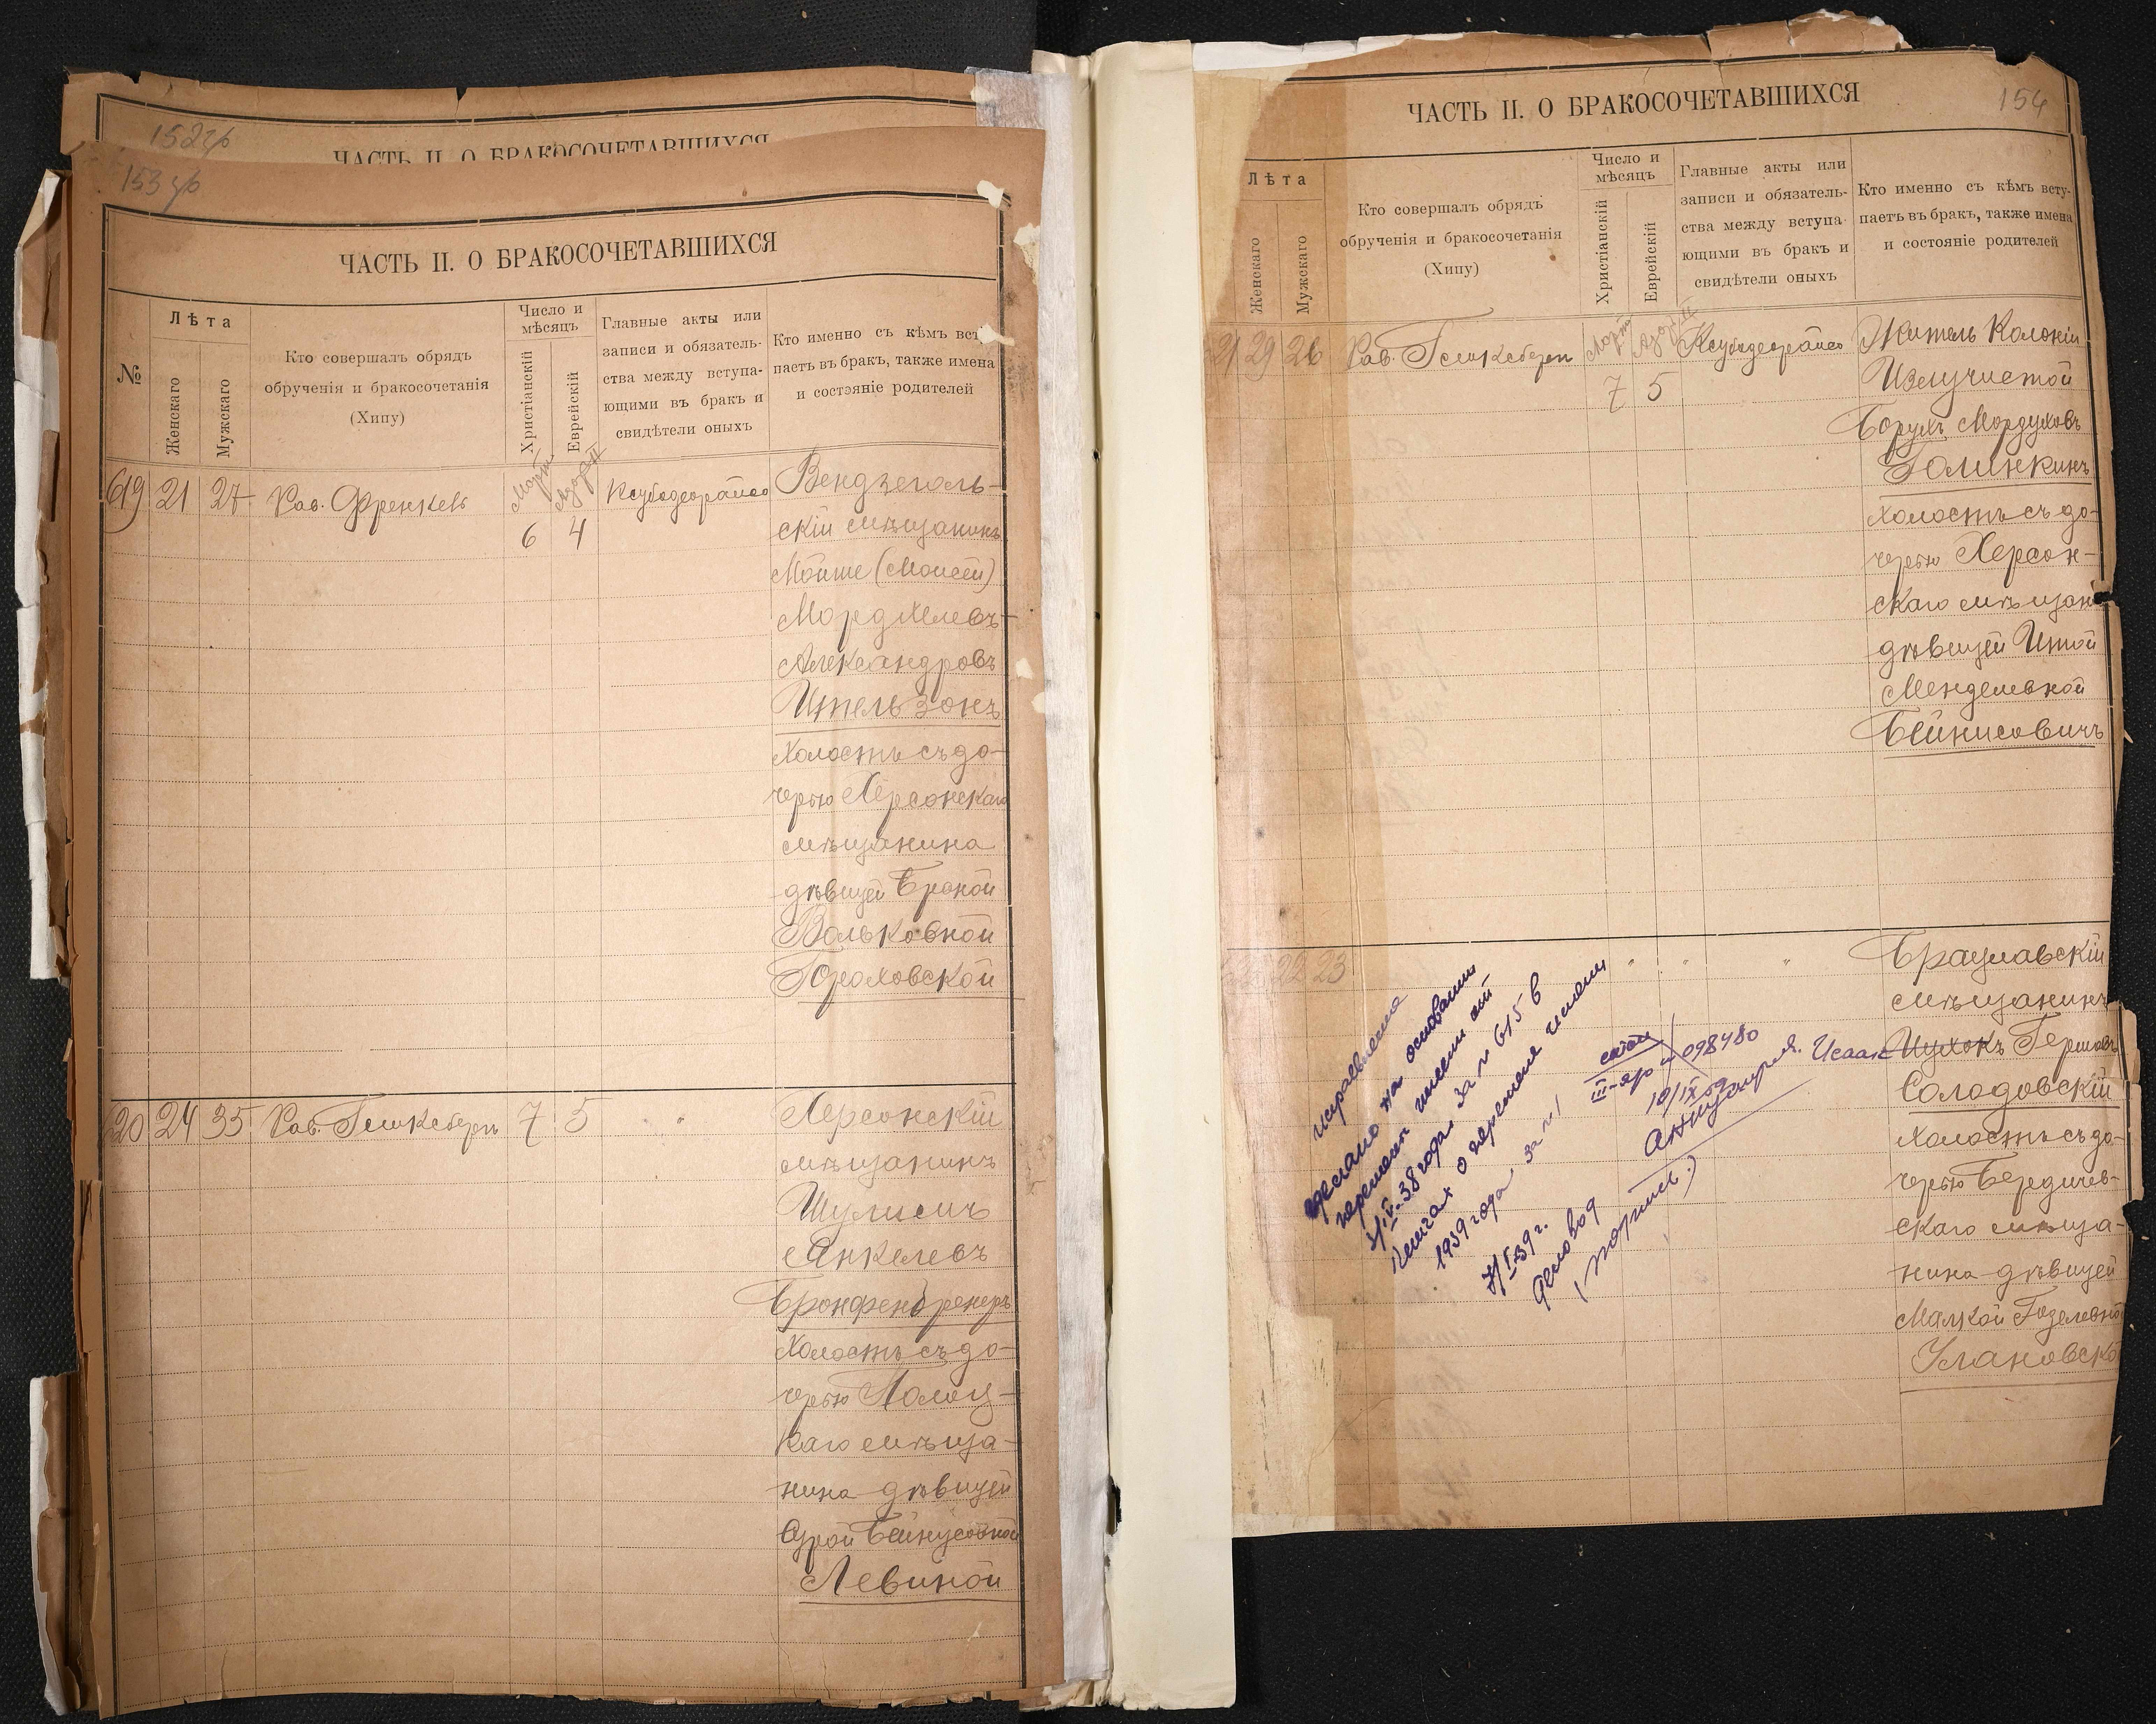 152 гр
ЧАСТЬ II. О БРАКОСОЧЕТАВШИХСЯ
153 гр
ЧАСТЬ II. О БРАКОСОЧЕТАВШИХСЯ
№
Лѣта
Женскаго
Мужскаго
Кто совершалъ обрядъ
обрученія и бракосочетанія
(Хипу)
Число и
мѣсяцъ
Христіанскій
Еврейскій
Главные акты или
записи и обязатель-
ства между вступа-
ющими въ бракъ и
свидѣтели оныхъ
Кто именно съ кѣмъ вст
паетъ въ бракъ, также имена
и состояніе родителей
619 21 27 Рав. Френкель
Март
6 4
Вендзеголь-
скій мѣщанинъ
Мойше (Моисей)
Мордхелевъ-
Александровъ
Ительзонъ
холостъ съ до-
черью Херсонскаго
мѣщанина
дѣвицей Броной
Вольковной
Гороховской
620 24 35 Рав. Гешкебергъ 7 5 "
Херсонскій
мѣщанинъ
Шулимъ
Анкелевъ
Бронфенбренеръ
холостъ съ до-
черью Полоц-
каго мѣща-
нина дѣвицей
Сурой Бейнусовной
Левиной
ЧАСТЬ II. О БРАКОСОЧЕТАВШИХСЯ
154
Лѣта
Женскаго
Мужскаго
Кто совершалъ обрядъ
обрученія и бракосочетанія
(Хипу)
Число и
мѣсяцъ
Христіанскій
Еврейскій
Главные акты или
записи и обязатель-
ства между вступа-
ющими въ бракъ и
свидѣтели оныхъ
Кто именно съ кѣмъ всту-
паетъ въ бракъ, также имена
и состояніе родителей
21 29 26 Рав. Гешкебергъ
Март
7 5
Житель Колоніи
Излучистой
Борухъ Мордуховъ
Голинкинъ
холостъ съ до-
черью Херсон-
скаго мѣщан
дѣвицей Итой
Менделевной
Бейнисовичъ
22 23 " " "
Брацлавскій
мѣщанинъ
Исаак Ицхокъ Гершовъ
Солодовскій
холостъ съ до-
черью Бердичев-
скаго мѣща-
нина дѣвицей
Малкой Годелевно
Улановско
исправление
сделано на основании
перемены имени
IV-38 года за № 615 в
книгах о перемене имени
1939 года за № 1
7/I-39 г.
Деловод
(подпись)
III-яр № 098480
10/IX 59